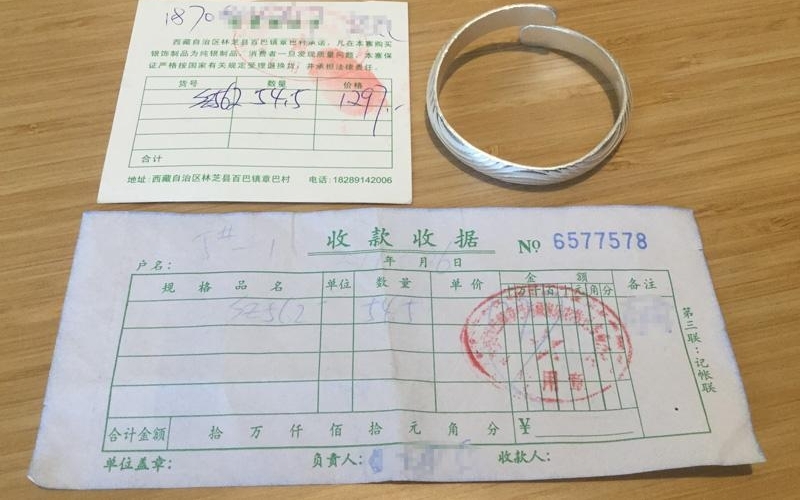 1870
西藏自治区林芝县百巴镇章巴村承诺，凡在本寨购买
银饰制品为纯银制品，消费者一旦发现质量问题，本寨保
证严格按国家有关规定受理退换货，并承担法律责任。
货号 数量 价格
SZ562 54.5 1297.-
合计
地址：西藏自治区林芝县百巴镇章巴村 电话：18289142006
收款收据 No 6577578
户名： 年 月 日
规格品名 单位 数量 单价 金额 备注
十万千百十元角分
SZ562 54.5
第三联：记帐联
合计金额 拾 万 仟 佰 拾 元 角 分 ¥
单位盖章： 负责人： 收款人：